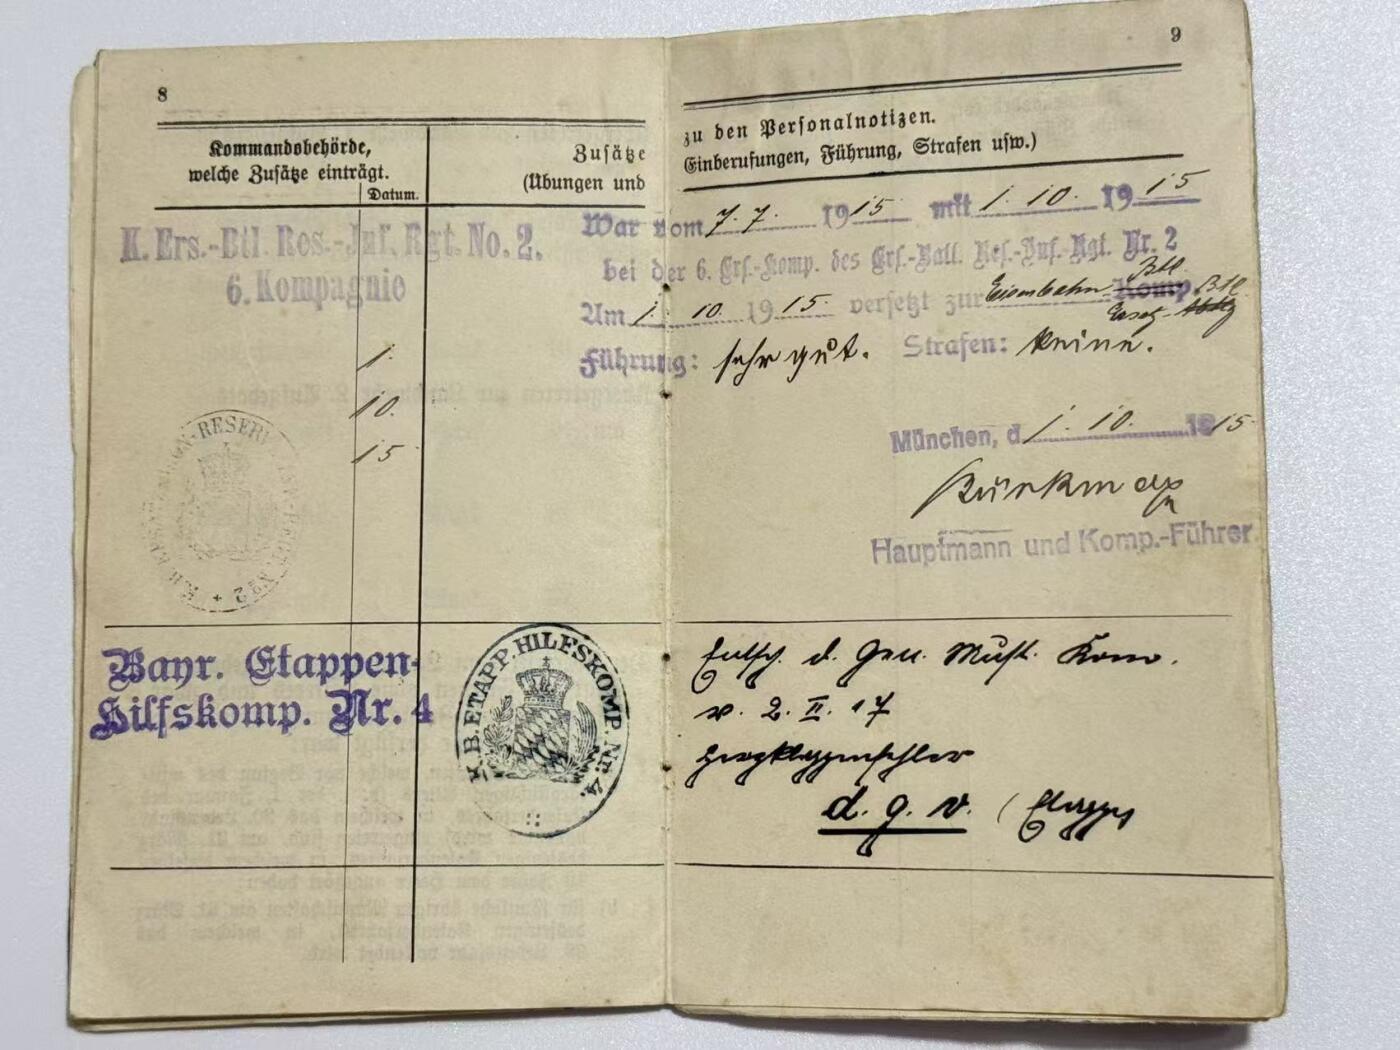 8
Kommandobehörde,
welche Zusätze einträgt.
Datum.
Zusätze
(Übungen und
K. Ers.-Btl. Res.-Inf. Rgt. No. 2.
6. Kompagnie
1.
10.
15
RESERVE
No 2
Bayr. Etappen-
Hilfskomp. Nr. 4
K.B. ETAPP. HILFSKOMP. Nr. 4.
9
zu den Personalnotizen.
Einberufungen, Führung, Strafen usw.)
War vom 7. 7. 1915 mit 1. 10. 1915
bei der 6. Ers.-Komp. des Ers.-Batl. Res.-Inf.-Rgt. Nr. 2
Am 1. 10. 1915. versetzt zur Eisenbahn Btl. Komp. Btl
Ersatz-Abtlg
Führung: sehr gut. Strafen: keine.
München, d. 1. 10. 1915
Hauptmann und Komp.-Führer
Entsch. d. Gen. Must. Kom.
v. 2. II. 17
Herzklappenfehler
d. g. v. (Etappe